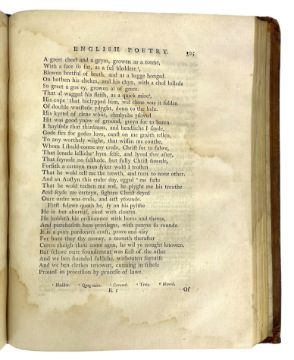 ENGLISH POETRY. 305
A great cherl and a grym, growen as a tonne,
With a face so fat, as a ful bleddere,
Blowen bretful of breth, and as a bagge honged
On bothen his chekes, and his chyn, with a chol lollede
So greet a gos ey, growen al of grece.
That al wagged his fleish, as a quick mire,
His cope that biclypped him, wel clene was it folden
Of double worstede ydyght, doun to the hele.
His kyrtel of clene white, clenlyche ysewed
Hit was good ynow of ground, greyn for to beren.
I haylsede that thirdman, and hendliche I sayde,
Gode sire for godes love, canst on me graith tellen,
To any worthely wight, that wissen me couthe,
Whom I shuld conne my crede, Christ for to folow,
That lenede lelliche hym selfe, and lyved ther after,
That feynede no falshede, but fully Christ suwede,
For sich a certeyn man syker wold I trosten
That he wold tell me the trewth, and turn to none other.
And an Austyn this ender day, egged me faste
That he wold techen me wel, he plyght me his treuthe
And seyde me certeyn, sighten Christ deyed
Oure ordre was evels, and erst yfounde.
First felawe quoth he, fy on his pylthe
He is but abortif, eked with cloutes.
He holdeth his ordinaunce with hores and theves,
And purchaseth hem privileges, with penyes so rounde.
It is a pur pardoners craft, prove and asay
For have they thy money, a moneth therafter
Certes theigh thou come agen, he wil ye nought knowen.
But felawe oure foundement was first of the othere
And we ben founded fulliche, withouten fayntise
And we ben clerkes renowen, cunning in schole
Proved in procession by processe of lawe
Bladder. Quagmire. Covered. Truly. Moved.
R r
Of